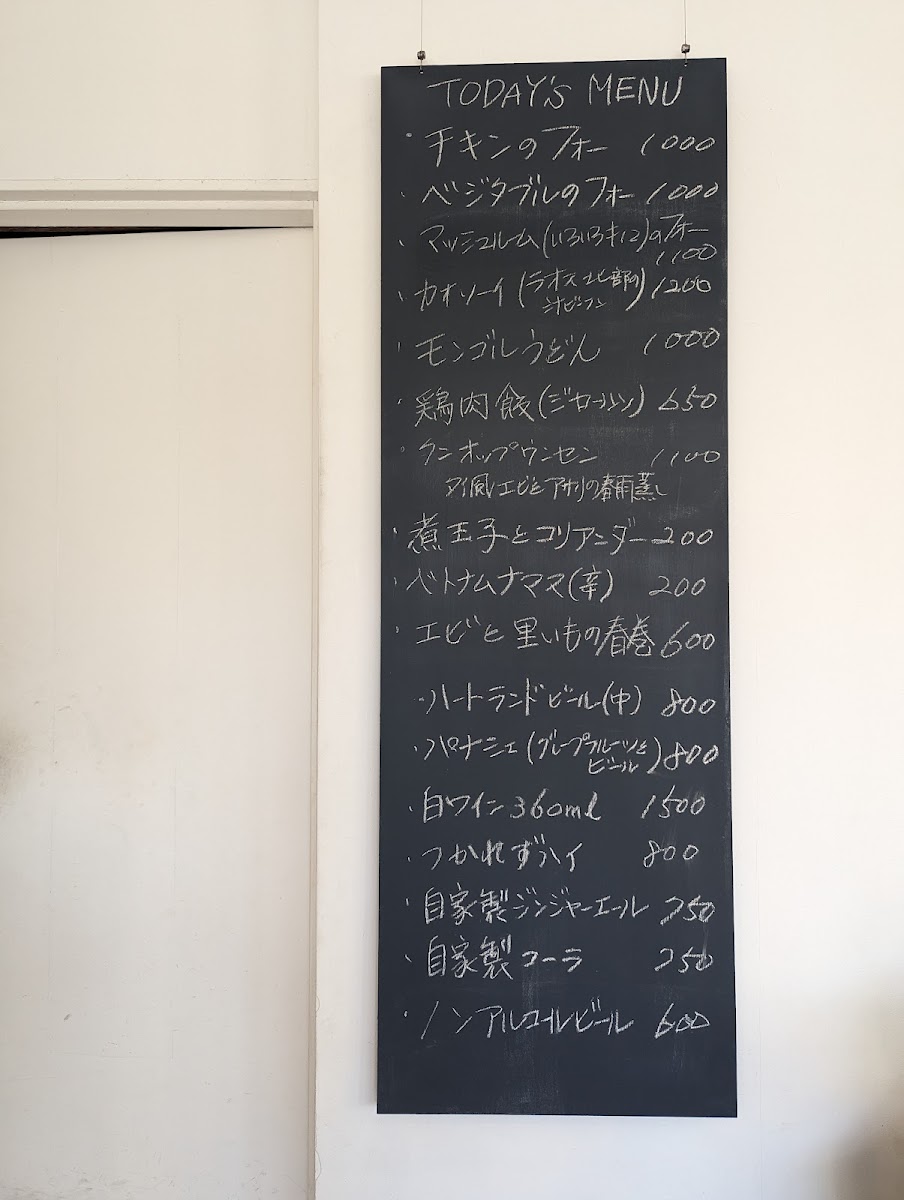 TODAY'S MENU
・チキンのフォー 1000
・ベジタブルのフォー 1000
・マッシュルーム(いろいろキノコ)のフォー
1100
・カオソーイ(ラオス北部の 1200
汁ビーフン)
・モンゴルうどん 1000
・鶏肉飯(ジーローハン) 650
・クンオップウンセン 1100
タイ風エビとアサリの春雨蒸し
・煮玉子とコリアンダー 200
・ベトナムナマス(辛) 200
・エビと里いもの春巻 600
・ハートランドビール(中) 800
・パナシェ(グレープフルーツと 800
ビール)
・白ワイン360ml 1500
・つかれずハイ 800
・自家製ジンジャーエール 750
・自家製コーラ 750
・ノンアルコールビール 600